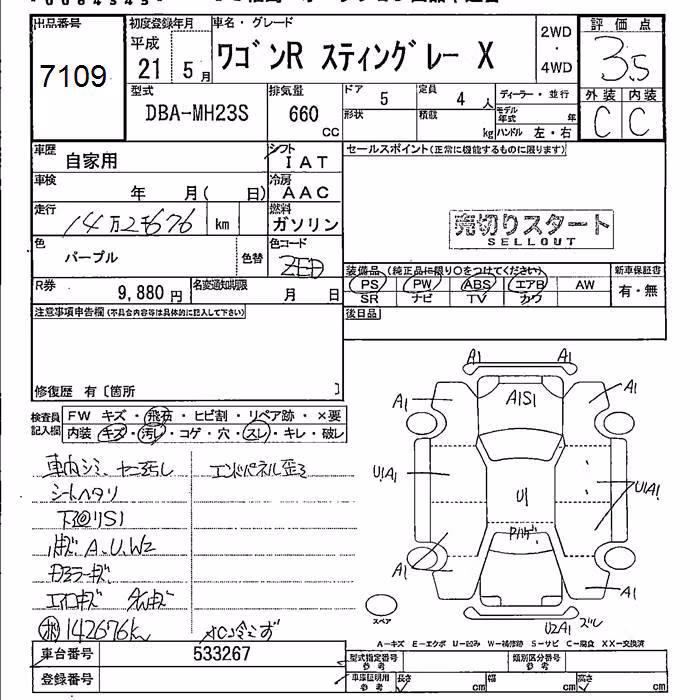 出品番号
7109
初度登録年月
平成
21 5月
車名・グレード
ワゴンR スティングレー X
2WD
・
4WD
評価点
3.5
外装 内装
C C
型式
DBA-MH23S
排気量
660
CC
ドア 5
定員 4 人
形状
積載 kg
ディーラー・並行
モデル年式 年
ハンドル 左・右
車歴 自家用
シフト IAT
車検 年 月( 日)
冷房 AAC
走行 14万2千676 km
燃料 ガソリン
色 パープル 色替
色コード ZED
R券 9,880円
名変通知期限 月 日
セールスポイント(正常に機能するものに限ります)
売切りスタート
SELLOUT
装備品(純正品に限り○をつけてください)
PS PW ABS エアB AW
SR ナビ TV カワ
新車保証書
有・無
後日品
注意事項申告欄(不具合内容等は具体的に記入して下さい)
修復歴 有〔箇所 〕
検査員記入欄
FW キズ・飛石・ヒビ割・リペア跡・×要
内装 キズ・汚レ・コゲ・穴・スレ・キレ・破レ
車内シミ、ヤニ汚レ エンドパネル歪ミ
シートヘタリ
下回リS1
A、U、W2
142676km
A1 A1
A1 A1S1 A1
U1A1 U1 U1A1
A1 A1
U2A1 ズレ
スペア
A-キズ E-エクボ U-凹み W-補修跡 S-サビ C-腐食 XX-交換済
車台番号 533267
登録番号
型式指定番号 参考
類別区分番号 参考
車庫証明用 参考
長さ cm 幅 cm 高さ cm